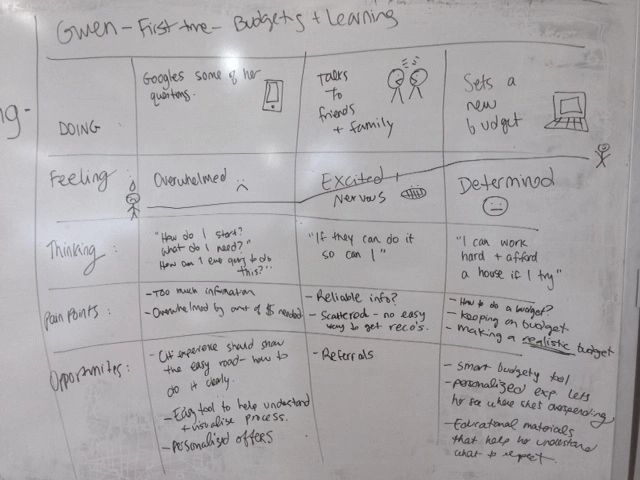 Gwen - First time - Budgeting + Learning
ng -
DOING:
Googles some of her
questions.
Talks
To
friends
+ family
Sets a
new
budget
Feeling:
Overwhelmed
Excited +
Nervous
Determined
Thinking:
"How do I start?
What do I need?"
How am I ever going to do
this?"
"If they can do it
so can I"
"I can work
hard + afford
a house if I try"
Pain Points:
- Too much information
- Overwhelmed by amt of $ needed
- Reliable info?
- Scattered - no easy
way to get reco's.
- How to do a budget?
- keeping on budget
- making a realistic budget
Opportunities:
- experience should show
the easy road - how to
do it clearly.
- Easy tool to help understand
+ visualise process.
- Personalised offers
- Referrals
- smart budgety tool
- personalized exp lets
her see where she's overspending
- Educational materials
that help her understand
what to expect.